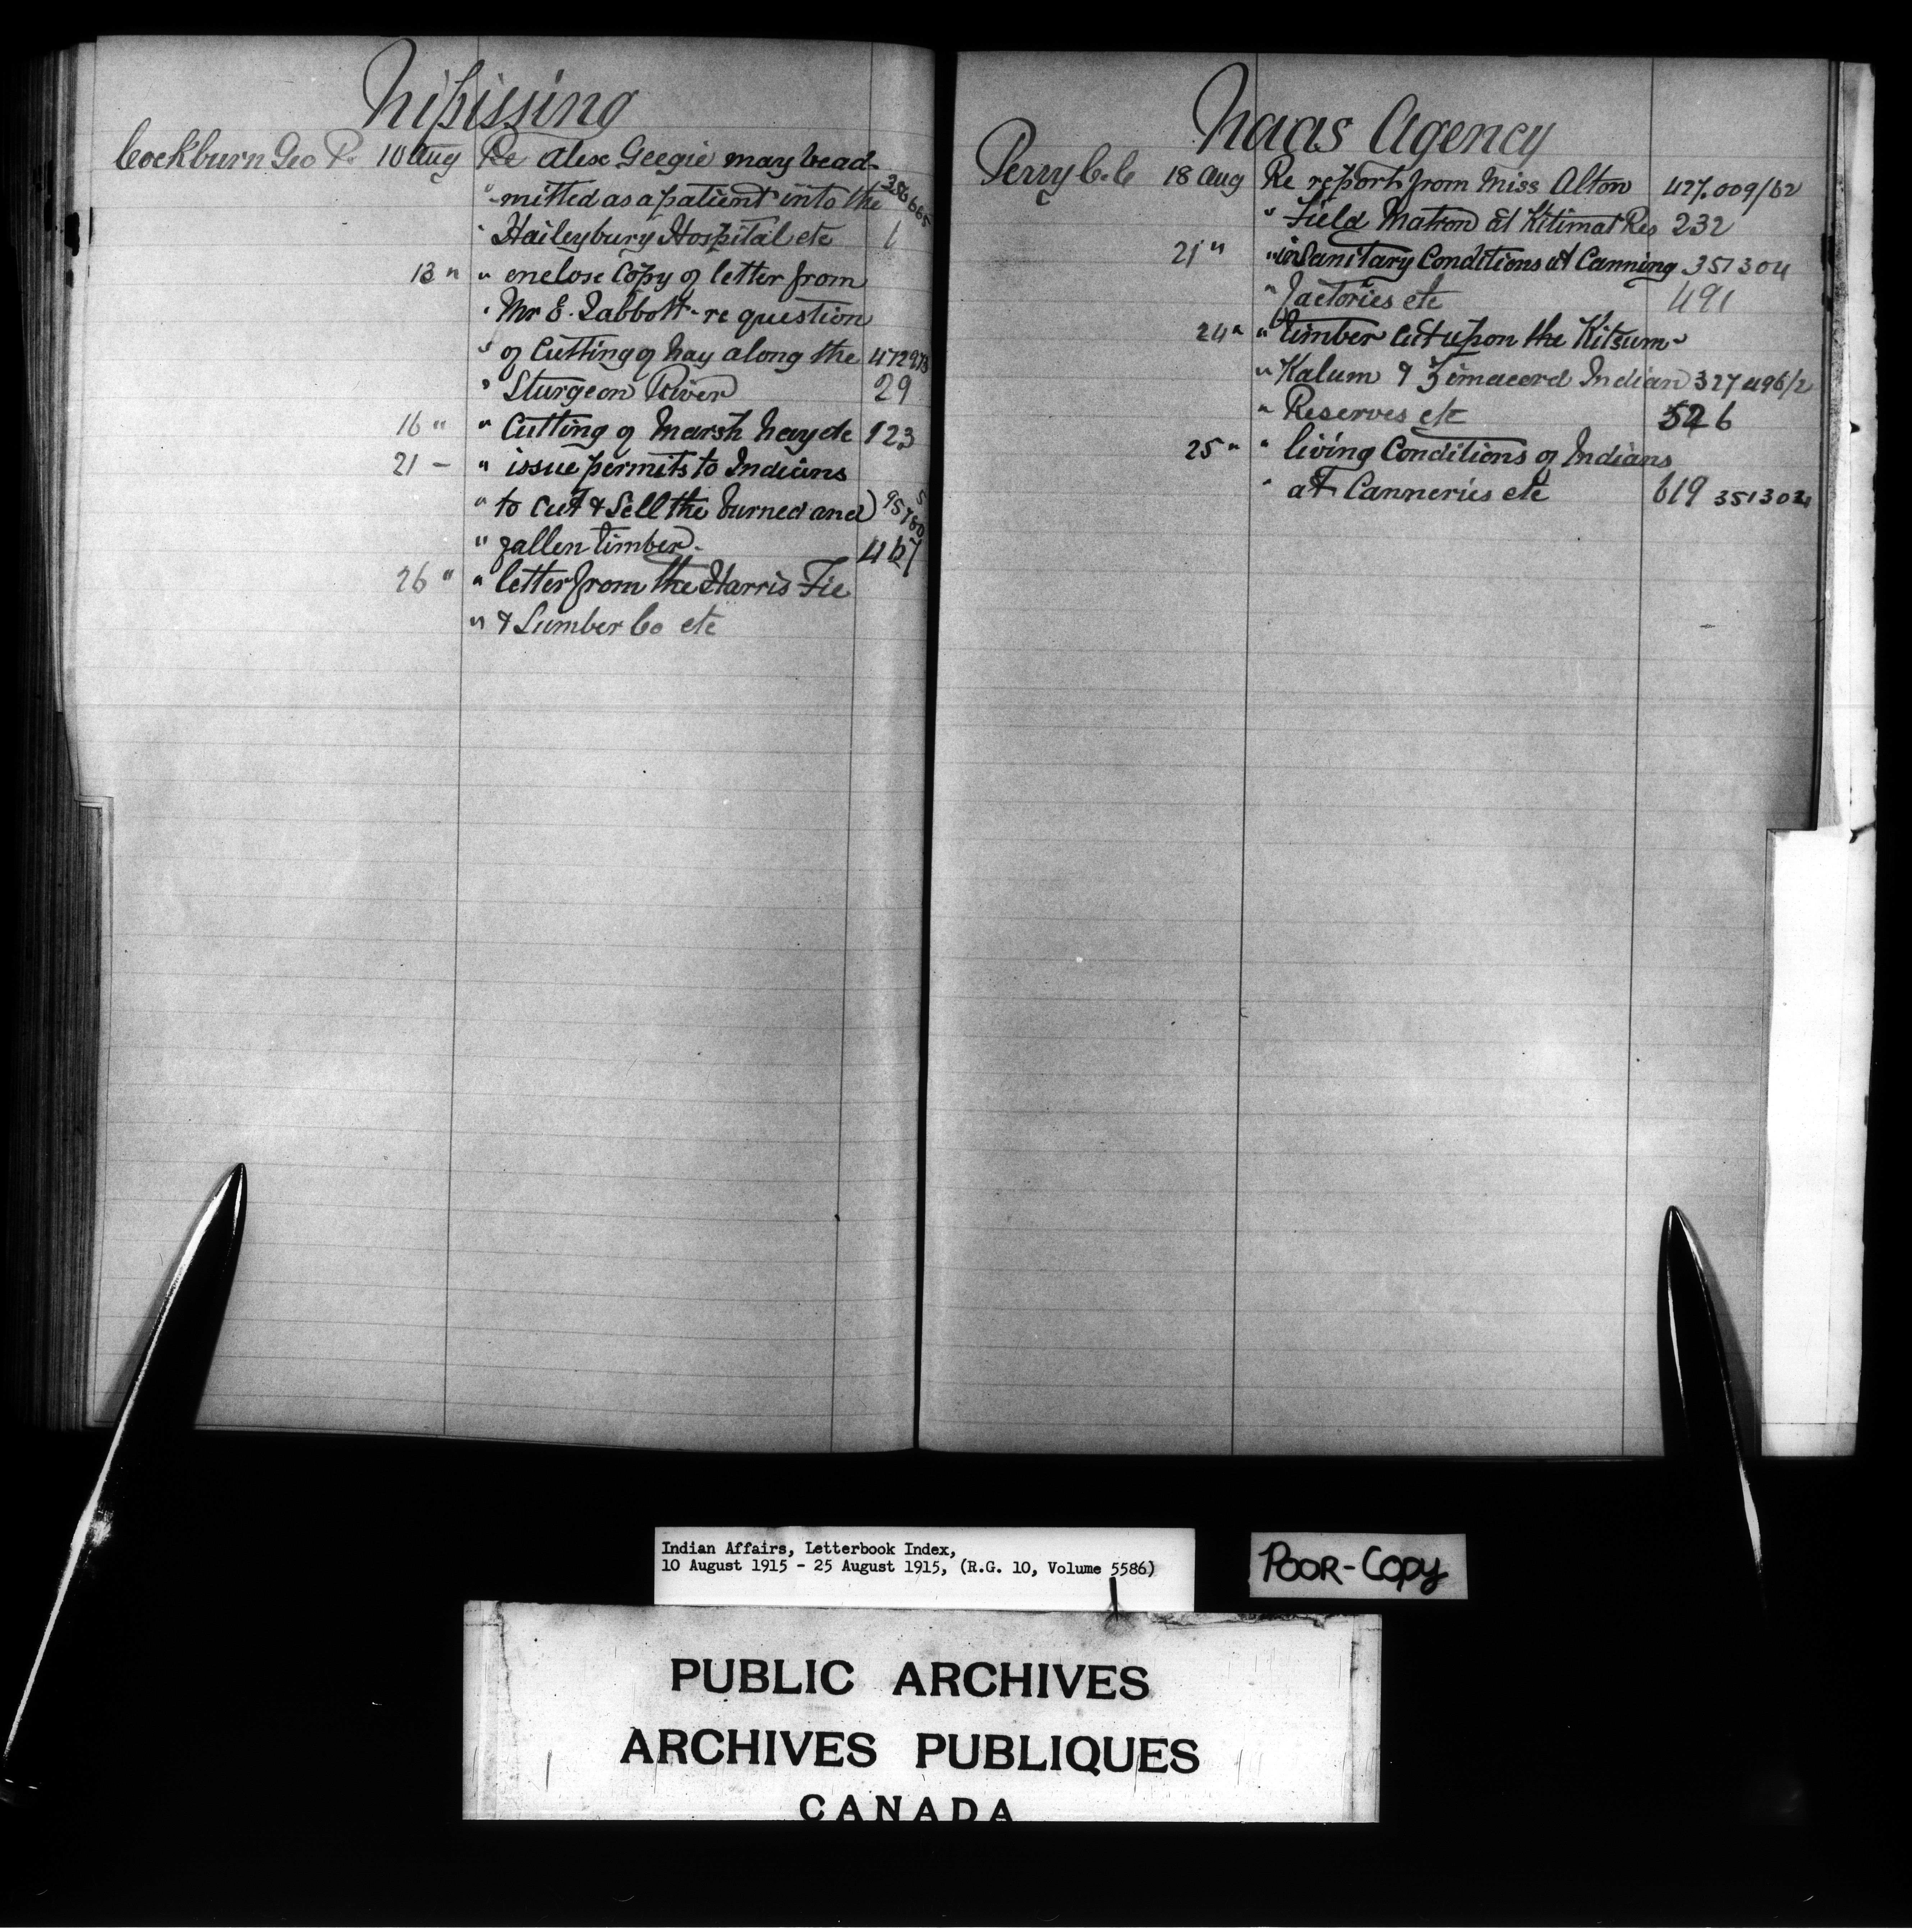 Nipissing
Cockburn Geo P. 10 Aug Re Alex Geegie may be ad-
" -mitted as a patient into the 356665
" Haileybury Hospital etc 1
13 " " enclose Copy of letter from
" Mr E. Labbott - re question
" of Cutting of hay along the 472973
" Sturgeon River 29
16 " " Cutting of Marsh hay etc 123
21 - " issue permits to Indians
" to cut & Sell the burned and
" fallen timber. 467
26 " " letter from the Harris Tie
" & Lumber Co etc
Naas Agency
Perry C.C 18 Aug Re report from Miss Alton 427.009/62
" Field Matron at Kitimat Res 232
21 " " insanitary Conditions at Canning 351304
" factories etc 491
24 " " timber cut upon the Kitsum-
" Kalum & Indian 327496/2
" Reserves etc 526
25 " " living Conditions of Indians
" at Canneries etc 619 351304
Indian Affairs, Letterbook Index,
10 August 1915 - 25 August 1915, (R.G. 10, Volume 5586)
POOR-COPY
PUBLIC ARCHIVES
ARCHIVES PUBLIQUES
CANADA